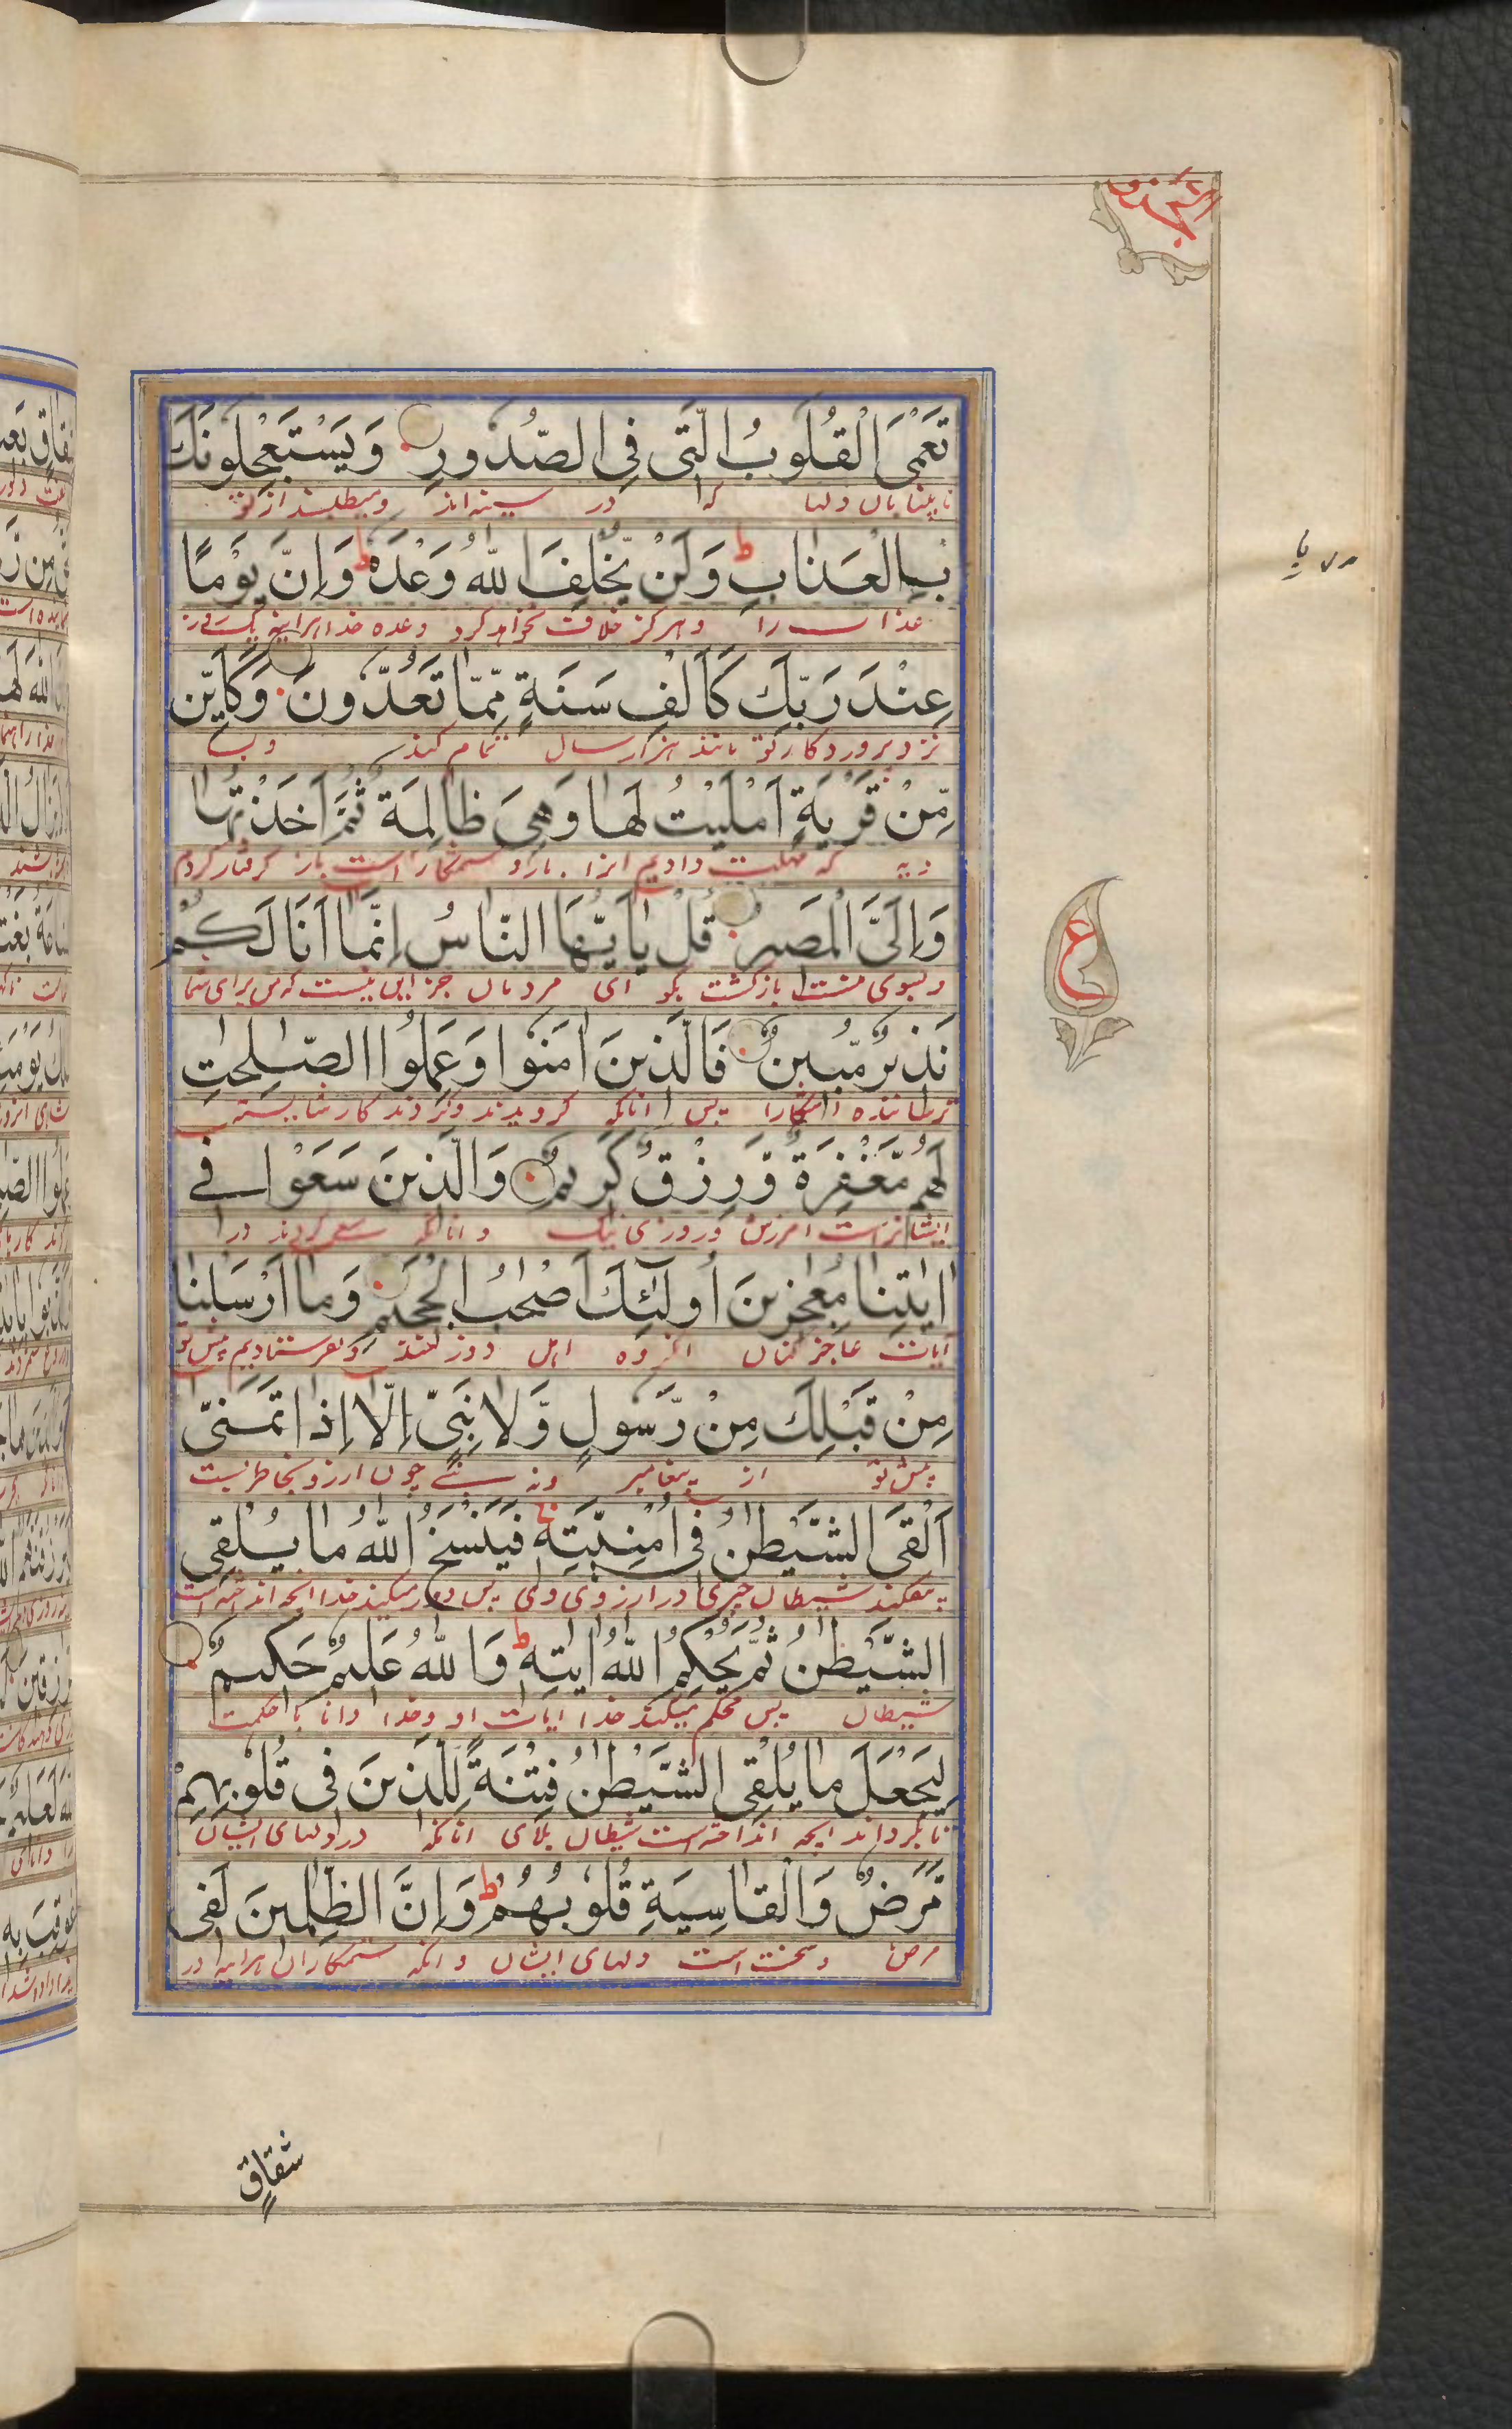 الجزو ١٧
تَعْمَى الْقُلُوبُ الَّتِى فِى الصُّدُورِ وَيَسْتَعْجِلُونَكَ
نابینایان دلها که در سینه اند و میطلبند از تو
بِالْعَذَابِ ط وَلَنْ يُّخْلِفَ اللّٰهُ وَعْدَهٗ ط وَاِنَّ يَوْمًا
عذاب را و هرگز خلافت نخواهد کرد وعده خدا هراینه یک روز
عِنْدَ رَبِّكَ كَاَلْفِ سَنَةٍ مِّمَّا تَعُدُّونَ وَكَاَيِّنْ
نزد پروردکار تو مانند هزار سال
مِّنْ قَرْيَةٍ اَمْلَيْتُ لَهَا وَهِىَ ظَالِمَةٌ ثُمَّ اَخَذْتُهَا
دیه که مهلت دادیم انرا ستمکار است باز کرفتار کردم
وَاِلَىَّ الْمَصِيرُ قُلْ يٰاَيُّهَا النَّاسُ اِنَّمَا اَنَا لَكُمْ
و بسوی منست بازکشت بکو ای مردمان جز این نیست که من برای شما
نَذِيرٌ مُّبِينٌ فَالَّذِينَ اٰمَنُوا وَعَمِلُوا الصّٰلِحٰتِ
ترساننده اشکارا پس انانکه کرویدند و کردند کار شایسته
لَهُمْ مَّغْفِرَةٌ وَّرِزْقٌ كَرِيمٌ وَالَّذِينَ سَعَوْا فِى
ایشانراست امرزش و روزی نیک و انانکه سعی کردند در
اٰيٰتِنَا مُعٰجِزِينَ اُولٰٓئِكَ اَصْحٰبُ الْجَحِيمِ وَمَا اَرْسَلْنَا
آیات عاجز کنان انکروه اهل دوزخند و نفرستادیم پیش تو
مِنْ قَبْلِكَ مِنْ رَّسُولٍ وَّلَا نَبِىٍّ اِلَّا اِذَا تَمَنّٰى
پیش تو از پیغامبر و نه نبی چون ارزو بخاطر بست
اَلْقَى الشَّيْطٰنُ فِى اُمْنِيَّتِهٖ فَيَنْسَخُ اللّٰهُ مَا يُلْقِى
بیفکند شیطان چیزی در ارزوی وی پس دور میکند خدا انچه انداخته است
الشَّيْطٰنُ ثُمَّ يُحْكِمُ اللّٰهُ اٰيٰتِهٖ ط وَاللّٰهُ عَلِيمٌ حَكِيمٌ
شیطان پس محکم میکند خدا ایات او و خدا دانا با حکمت
لِيَجْعَلَ مَا يُلْقِى الشَّيْطٰنُ فِتْنَةً لِّلَّذِينَ فِى قُلُوبِهِمْ
تا بکرداند انچه انداخته است شیطان بلای انانکه در دلهای ایشان
مَّرَضٌ وَالْقَاسِيَةِ قُلُوبُهُمْ ط وَاِنَّ الظّٰلِمِينَ لَفِى
مرض و سخت است دلهای ایشان و انکه ستمکاران هراینه در
ع
شِقَاقٍ